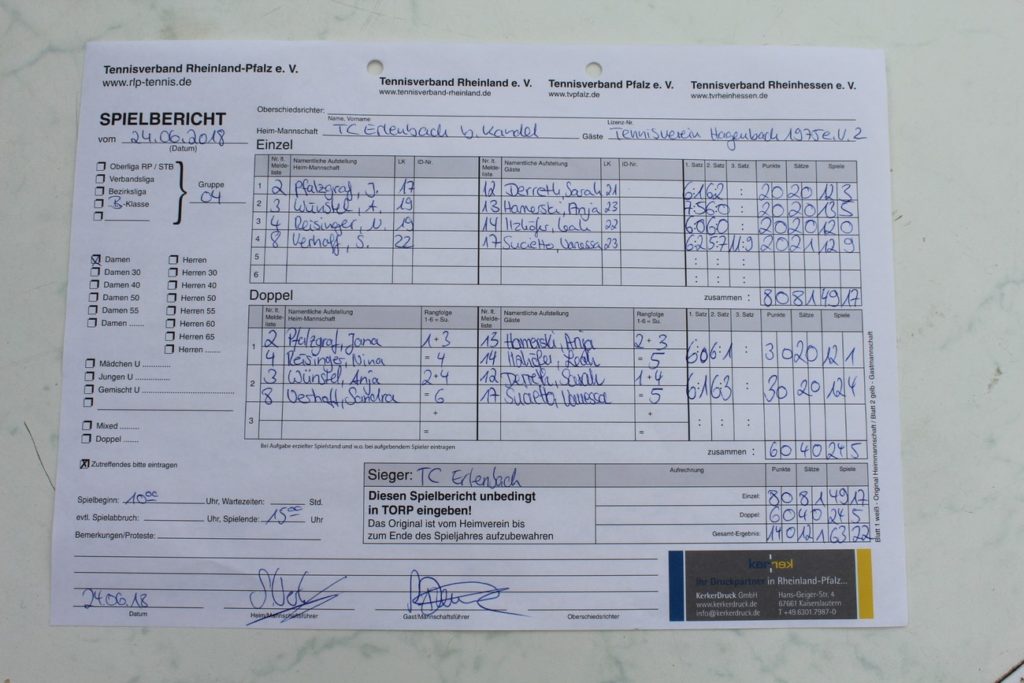 Tennisverband Rheinland-Pfalz e. V.
www.rlp-tennis.de
Tennisverband Rheinland e. V. Tennisverband Pfalz e. V. Tennisverband Rheinhessen e. V.
www.tennisverband-rheinland.de www.tvpfalz.de www.tvrheinhessen.de
SPIELBERICHT
vom 24.06.2018
(Datum)
Oberschiedsrichter:
Name, Vorname Lizenz-Nr.
Heim-Mannschaft TC Erlenbach b. Kandel Gäste Tennisverein Hagenbach 1975 e.V. 2
Oberliga RP / STB
Verbandsliga
Bezirksliga
B-Klasse
Gruppe
04
Damen Herren
Damen 30 Herren 30
Damen 40 Herren 40
Damen 50 Herren 50
Damen 55 Herren 55
Damen ....... Herren 60
Herren 65
Herren .......
Mädchen U ............
Jungen U ............
Gemischt U ............
Mixed .........
Doppel .........
Zutreffendes bitte eintragen
Einzel
Nr. lt. Meldeliste Namentliche Aufstellung Heim-Mannschaft LK ID-Nr. Nr. lt. Meldeliste Namentliche Aufstellung Gäste LK ID-Nr. 1. Satz 2. Satz 3. Satz Punkte Sätze Spiele
1 2 Pfalzgraf, J. 17 12 Derreth, Sarah 21 6:1 6:2 : 2 0 2 0 12 3
2 3 Wünstel, A. 19 13 Hamerski, Anja 23 7:5 6:0 : 2 0 2 0 13 5
3 4 Reisinger, N. 19 14 Itzhöfer, Leah 22 6:0 6:0 : 2 0 2 0 12 0
4 8 Verhoff, S. 22 17 Sucietto, Vanessa 23 6:2 5:7 11:9 2 0 2 1 12 9
5 : : :
6 : : :
zusammen : 8 0 8 1 49 17
Doppel
Nr. lt. Meldeliste Namentliche Aufstellung Heim-Mannschaft Rangfolge 1-6 = Su. Nr. lt. Meldeliste Namentliche Aufstellung Gäste Rangfolge 1-6 = Su. 1. Satz 2. Satz 3. Satz Punkte Sätze Spiele
1 2 Pfalzgraf, Jana 1+3 13 Hamerski, Anja 2+3 6:0 6:1 : 3 0 2 0 12 1
4 Reisinger, Nina = 4 14 Itzhöfer, Leah = 5
2 3 Wünstel, Anja 2+4 12 Derreth, Sarah 1+4 6:1 6:3 : 3 0 2 0 12 4
8 Verhoff, Sandra = 6 17 Sucietto, Vanessa = 5
3 + + : : :
= =
Bei Aufgabe erzielter Spielstand und w.o. bei aufgebendem Spieler eintragen
zusammen : 6 0 4 0 24 5
Sieger: TC Erlenbach
Diesen Spielbericht unbedingt
in TORP eingeben!
Das Original ist vom Heimverein bis
zum Ende des Spieljahres aufzubewahren
Aufrechnung Punkte Sätze Spiele
Einzel: 8 0 8 1 49 17
Doppel: 6 0 4 0 24 5
Gesamt-Ergebnis: 14 0 12 1 63 22
Blatt 1 weiß - Original Heimmannschaft / Blatt 2 gelb - Gastmannschaft
Spielbeginn: 10 00 Uhr, Wartezeiten: Std.
evtl. Spielabbruch: Uhr, Spielende: 15 00 Uhr
Bemerkungen/Proteste:
24.06.18
Datum Heim/Mannschaftsführer Gast/Mannschaftsführer Oberschiedsrichter
Ihr Druckpartner in Rheinland-Pfalz...
KerkerDruck GmbH Hans-Geiger-Str. 4
www.kerkerdruck.de 67661 Kaiserslautern
info@kerkerdruck.de T +49.6301.7987-0